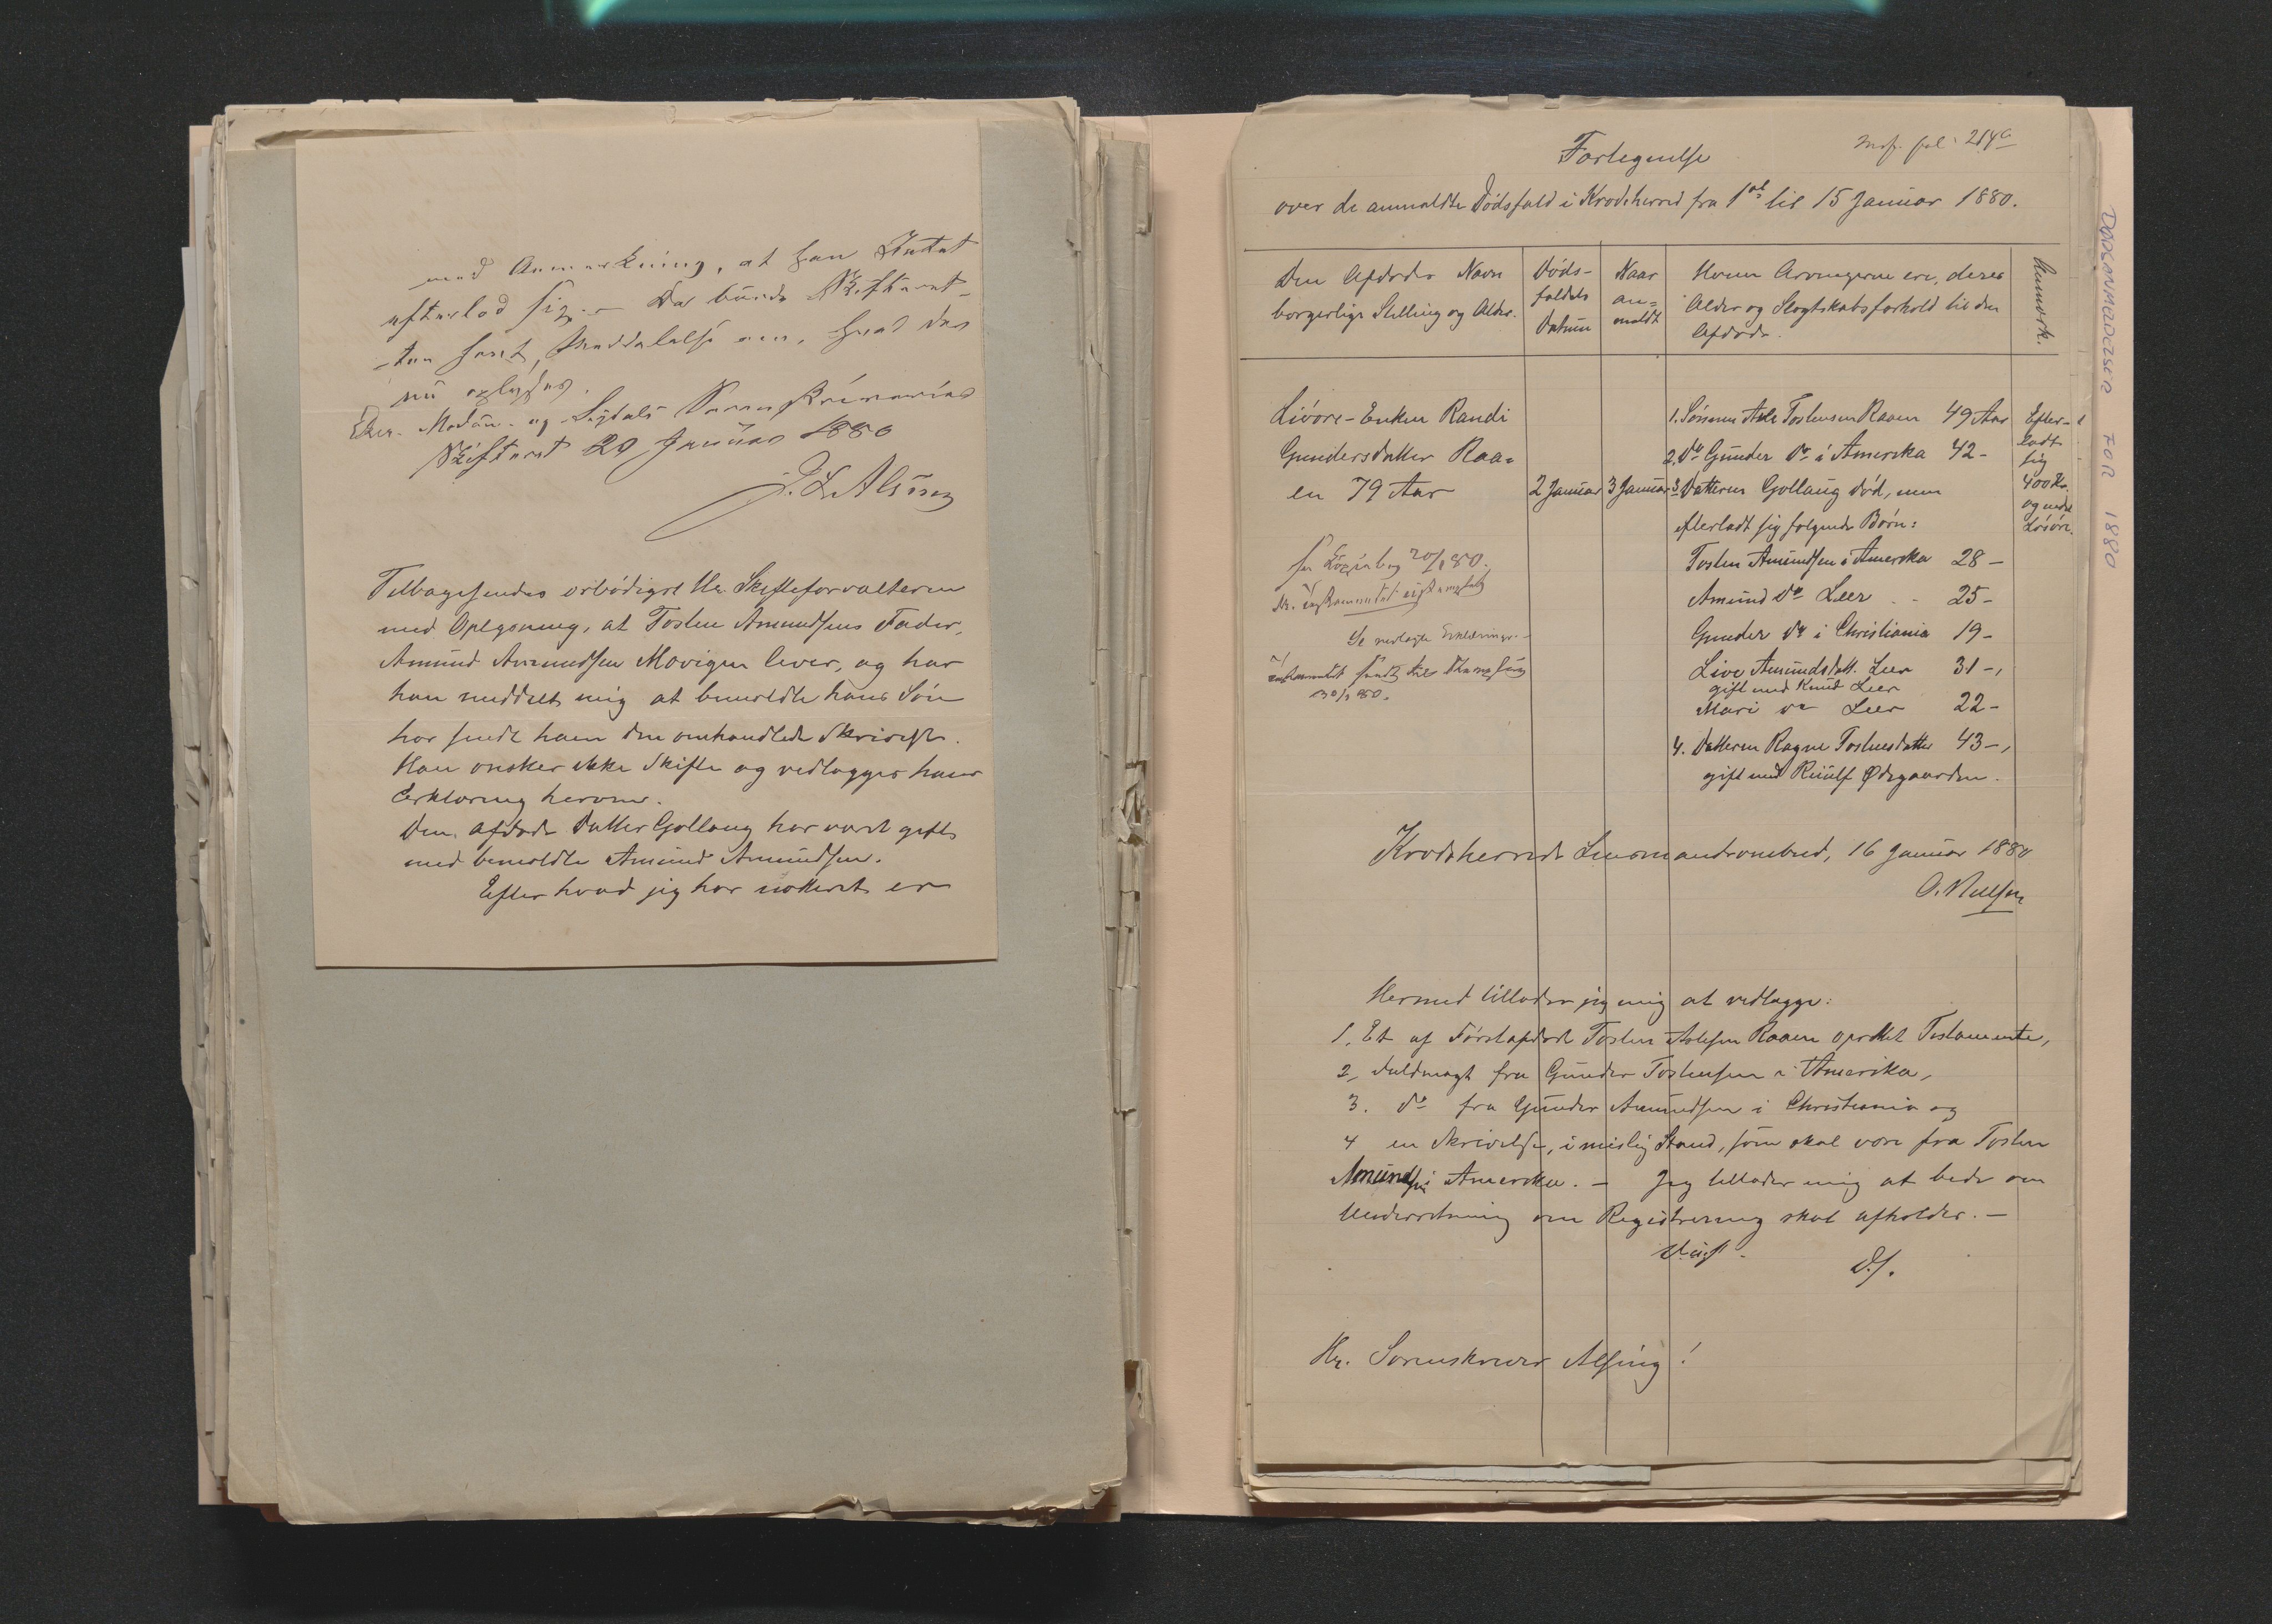 med Anmærkning, at han Intet
efterlod sig. – Der bürde Skifteret-
-ten havt Meddelelse om, hvad der
nü oplyses.
Eker- Modüm- og Sigdals Sorenskriveries
Skifteret 29 Januar 1880
Tilbagesendes ærbødigst Hr. Skifteforvalteren
med Oplysning, at Tosten Amundsens Fader,
Amünd Amundsen Movigen lever, og har
han meddelt mig at bemeldte hans Søn
har sendt ham den omhandlede Skrivelse.
Han ønsker ikke Skifte og vedlægges hans
Erklæring herom.
Den afdøde Datter Gollaug har vært gift
med bemeldte Amünd Amündsen.
Efter hvad jeg har notteret er
Fortegnelse
fol. 214a
over de anmeldte Dødsfald i Krødsherred fra 1ste til 15 Januar 1880.
Den Afdødes Navn
borgerlige Stilling og Alder.
Døds-
faldets
Datum
Naar
an-
meldt
Hvem Arvingerne ere, deres
Alder og Slægtskabsforhold til den
Afdøde.
Anmærk.
Livøre-Enken Randi
Gundersdatter Raa-
en 79 Aar
2 Januar
3 Januar
1. Sønnen Asle Tostensen Raaen 49 Aar
2. Do Gunder Do i Amerika 42 -
3. Datteren Gollaug død, men
efterladt sig følgende Børn:
Tosten Amundsen i Amerika 28 -
Amünd Do Leer 25 -
Gunder Do i Christiania 19 -
Live Amündsdatt. Leer 31 -,
gift med Knud Leer
Mari Do Leer 22 -
4. Datteren Ragne Tostensdatter 43 -,
gift med Ødegaarden.
Efter-
ladt
sig
400 Kr.
og endel
Løsøre.
20/1 80.
Se vedlagte Erklæringer. -
30/1 80.
Krødsherreds Lensmandsombud, 16 Januar 1880
O. Nielsen
Hermed tillader jeg mig at vedlægge:
1. Et af Førstafdøde Tosten Aslesen Raaen oprettet Testamente,
2, Fuldmagt fra Günder Tostensen i Amerika,
3. Do fra Günder Amündsen i Christiania og
4 en Skrivelse, i mislig Stand, som skal være fra Tosten
Amündsen i Amerika. – Jeg tillader mig at bede om
Underretning om Registrering skal afholdes. –
D.S.
Hr. Sorenskriver Alsing!
DØDSANMELDELSER FOR 1880